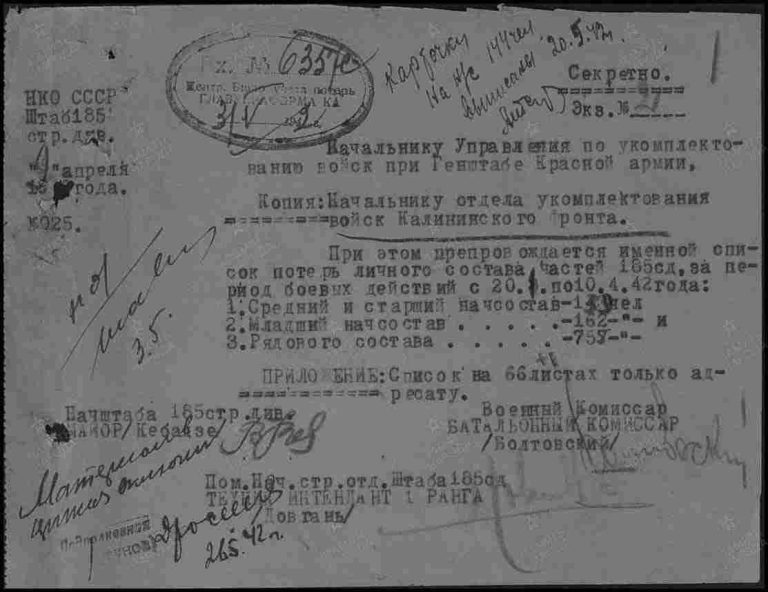 Вх. № 6357с
Центр. Бюро учета потерь
31/V 2
Карточки
на н/с 144 чел
выписаны 20.5.42г.
Секретно.
Экз. №
НКО СССР
Штаб185
стр.див.
" "апреля
года.
№025.
Начальнику Управления по укомплекто-
ванию войск при Генштабе Красной армии,
Копия:Начальнику отдела укомплектования
войск Калининского фронта.
При этом препровождается именной спи-
сок потерь личного состава частей 185сд,за пе-
риод боевых действий с 20. .по10.4.42года:
1.Средний и старший начсостав- чел
2.Младший начсостав . . . . . .-162-"- и
3.Рядового состава . . . . . .-759-"-
3.5.
ПРИЛОЖЕНИЕ:Список на 66листах только ад-
ресату.
Начштаба 185стр.див.
МАЙОР/
Военный Комиссар
БАТАЛЬОННЫЙ КОМИССАР
/Болтовский/
Пом.Нач.стр.отд.Штаба185сд
ТЕХНИК ИНТЕНДАНТ 1 РАНГА
/Довгань/
Материалы
Подполковник
26.5.42г.